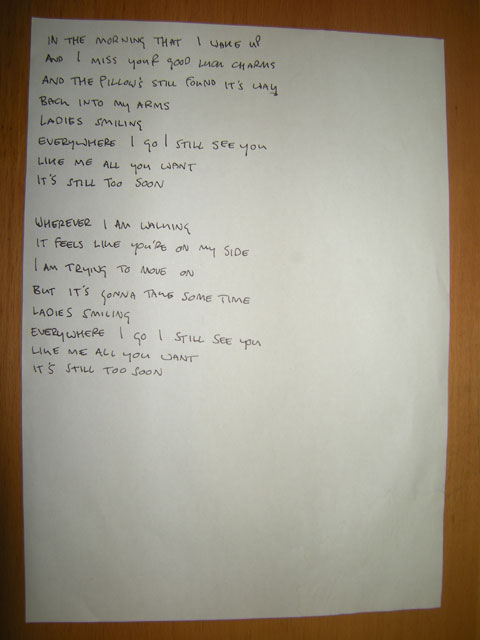 IN THE MORNING THAT I WAKE UP
AND I MISS YOUR GOOD LUCK CHARMS
AND THE PILLOW'S STILL FOUND IT'S WAY
BACK INTO MY ARMS
LADIES SMILING
EVERYWHERE I GO I STILL SEE YOU
LIKE ME ALL YOU WANT
IT'S STILL TOO SOON
WHEREVER I AM WALKING
IT FEELS LIKE YOU'RE ON MY SIDE
I AM TRYING TO MOVE ON
BUT IT'S GONNA TAKE SOME TIME
LADIES SMILING
EVERYWHERE I GO I STILL SEE YOU
LIKE ME ALL YOU WANT
IT'S STILL TOO SOON